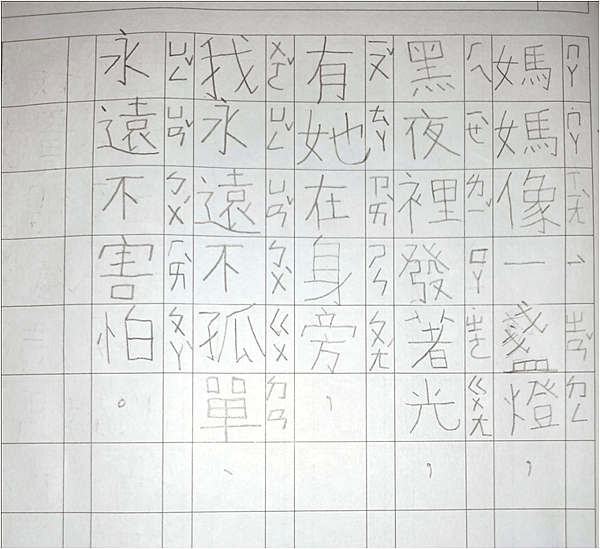 媽媽像一盞燈，
黑夜裡發著光，
有她在身旁，
我永遠不孤單、
永遠不害怕。